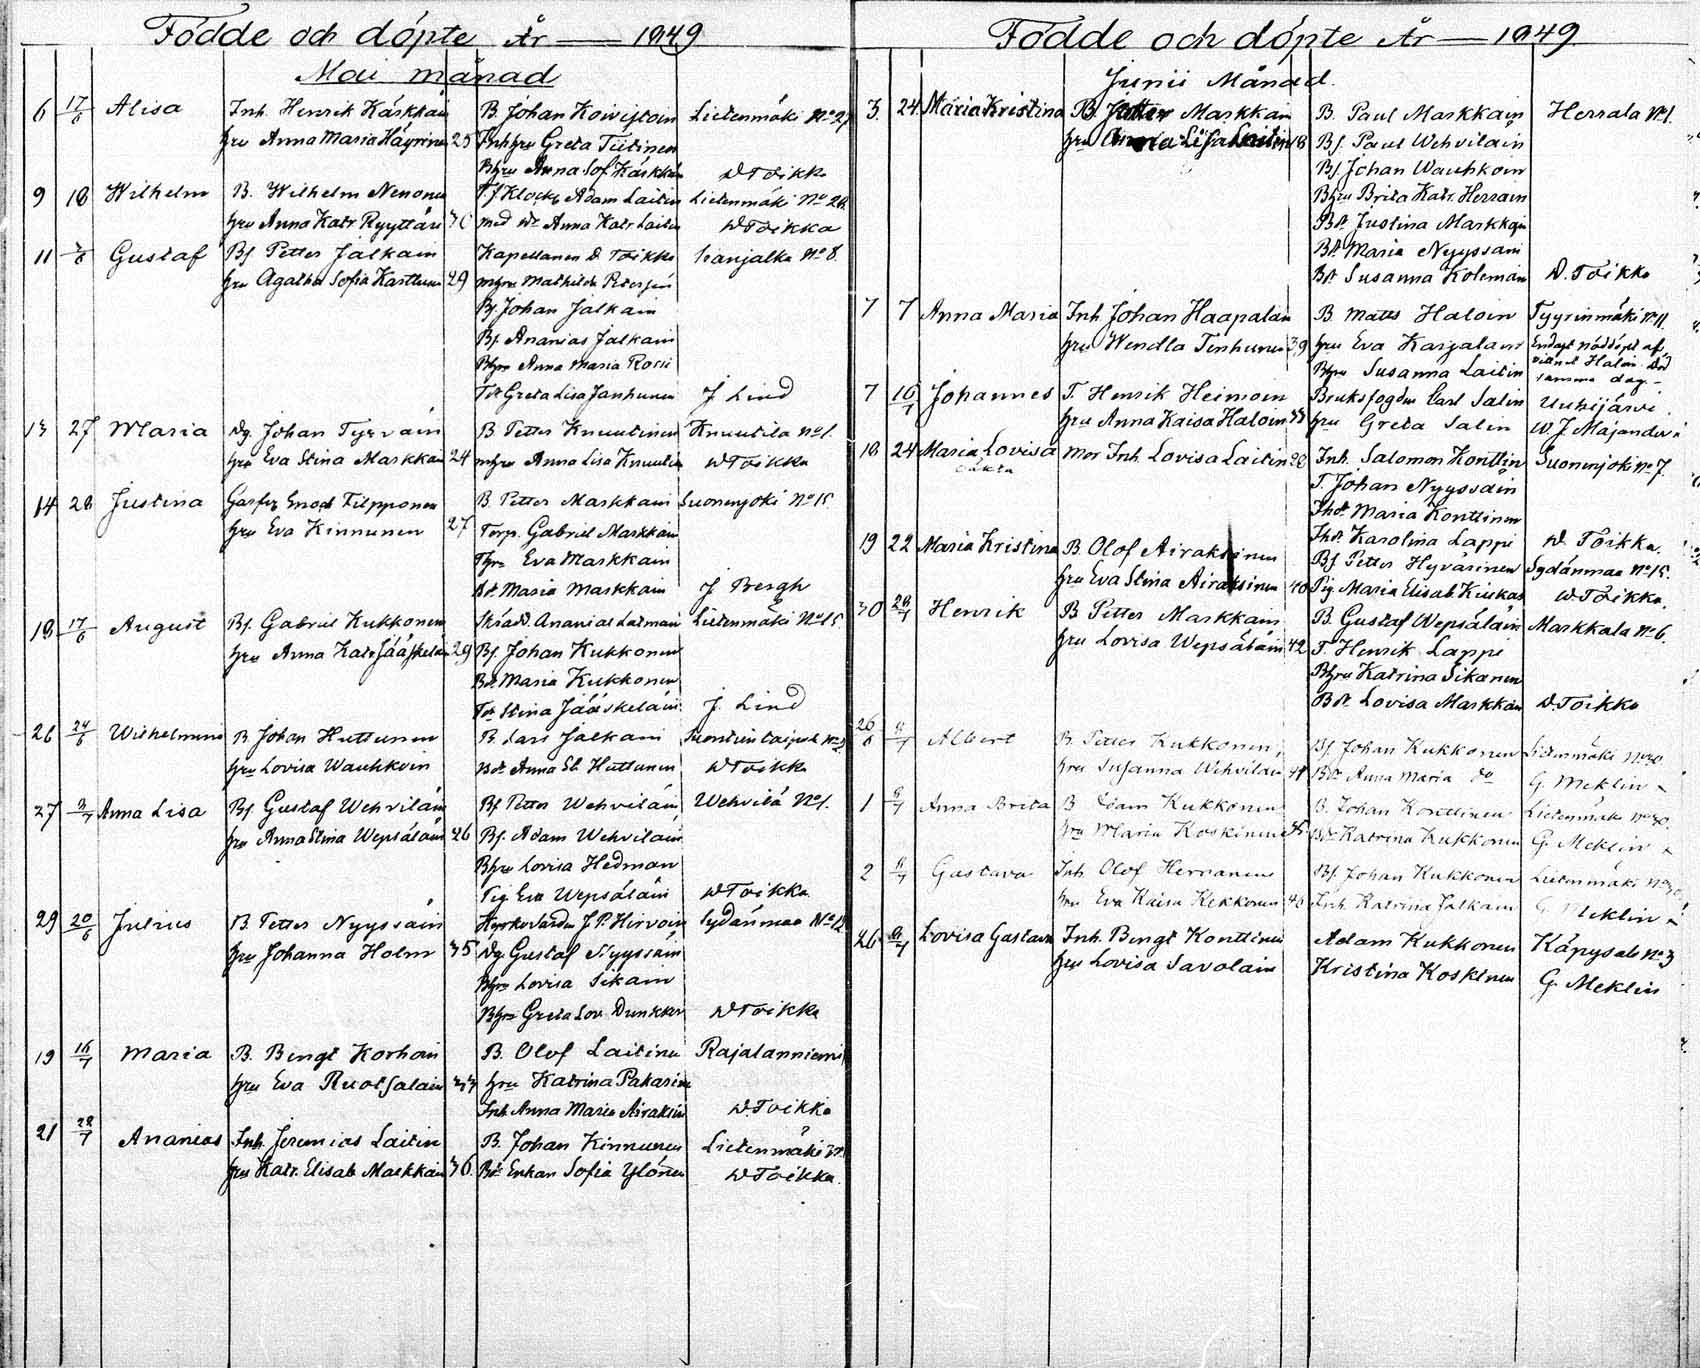 Födde och döpte År — 1849
Mai månad
6 17/6 Alisa Inh. Henrik Kärkkäin B. Johan Koiviston Lietenmäki No 21
hru Anna Maria Häyrinen 25 Inh hru Greta Tiitinen
Bhru Anna Sof Kärkkän D Toikka
9 18 Wilhelm B. Wilhelm Nenonen Klock. Adam Laitin Lietenmäki No 28
hru Anna Katr Ryyttäri med Anna Katr Laitin D Toikka
11 Gustaf Bs Petter Jalkain Kapellanen D Toikka No 8.
hru Agatha Sofia Karttunen 29 mhru Mathilda
Bs Johan Jalkain
Bs. Ananias Jalkain
Bhru Anna Maria
Greta Lisa Janhunen J Lind
13 27 Maria Dg. Johan Tyrväin B. Petter Knuutinen Knuutila No 1.
hru Eva Stina Markkain 24 mhru Anna Lisa Knuutin D Toikka
14 28 Justina Enoch Filpponen B. Petter Markkain Suonenjoki No 15
hru Eva Kinnunen 27 Torp. Gabriel Markkain
Thru Eva Markkain
Bdr Maria Markkain J Bergh
18 17/6 August Bs. Gabriel Kukkonen Skrädd. Ananias Lietenmäki No 15
hru Anna Katr Jääskeläin 29 Bs Johan Kukkonen
Bdr Maria Kukkonen
Stina Jääskeläin J. Lind
26 24/6 Wilhelmina B Johan Huttunen B. Lars Jalkain
hru Lovisa Wauhkoin Bdr Anna St. Huttunen D Toikka
27 Anna Lisa Bs Gustaf Wehviläin Bs Petter Wehviläin Wehvilä No 1.
hru Anna Stina Wepsäläin 26 Bs. Adam Wehviläin
Bhru Lovisa Hedman
Pig Eva Wepsäläin D Toikka
29 20/6 Julius B. Petter Nyyssäin Kyrkovärden J. P. Hirvoin Sydänmaa No 12
hru Johanna Holm 35 Dg. Gustaf Nyyssäin
Bhru Lovisa Sikain
Bhru Greta Lov. Dunkker D Toikka
19 16/7 Maria B. Bengt Korhoin B. Olof Laitinen Rajalanniemi
hru Eva Ruotsalain hru Katrina Pakarin
Inh Anna Maria Airaksin D. Toikka
21 22/7 Ananias Inh. Jeremias Laitin B. Johan Kinnunen Lietenmäki
hru Katr. Elisab Markkain 36 Enkan Sofia Ylönen D Toikka.
Födde och döpte År — 1849
Junii Månad.
3. 24 Maria Kristina B. Petter Markkain B. Paul Markkain Herrala No 1.
hru Anna Lisa Laitin 18 Bs. Paul Wehviläin
Bs Johan Wauhkoin
Bhru Brita Katr. Herrain
Bdr Justina Markkain
Bdr Maria Nyyssäin
Bdr Susanna Kolemain D. Toikka
7 7 Anna Maria Inh Johan Haapalain B. Matts Haloin Tyyrinmäki No 11.
hru Wendla Tenhunen 39 hru Eva Karjalain Endast nöddöpt af
Bhru Susanna Laitin Haloin. Död samma dag.
7 10/7 Johannes T. Henrik Heimoin Bruksfogden Carl Salin Uuhijärvi
hru Anna Kaisa Haloin hru Greta Salin W. J. Majander
18 24 Maria Lovisa mor Inh. Lovisa Laitin 28 Inh. Salomon Konttin Suonenjoki No 7.
oäkta T. Johan Nyyssäin
Maria Konttinen
Karolina Lappi D. Toikka.
19 22 Maria Kristina B. Olof Airaksinen Bs Petter Hyvärinen Sydänmaa No 15.
hru Eva Stina Airaksinen 40 Pig Maria Elisab Kiukas D Toikka.
30 Henrik B Petter Markkain B. Gustaf Wepsäläin Markkala No 6.
hru Lovisa Wepsäläin 42 T. Henrik Lappi
Bhru Katrina Sikanen
Bdr. Lovisa Markkain D. Toikka
26/6 Albert B. Petter Kukkonen Bs Johan Kukkonen Lietenmäki No 30.
hru Susanna Wehviläin Bdr Anna Maria do G. Meklin
1 Anna Brita B Adam Kukkonen B. Johan Konttinen Lietenmäki No 30.
hru Maria Koskinen Katrina Kukkonen G. Meklin
2 Gustava Inh Olof Herranen Bs. Johan Kukkonen Lietenmäki No 30
hru Eva Kaisa Kekkonen 40 Inh Katrina Jalkain G Meklin
26 Lovisa Gustava Inh. Bengt Konttinen Adam Kukkonen Käpysalo No 3
hru Lovisa Savolain Kristina Koskinen G. Meklin